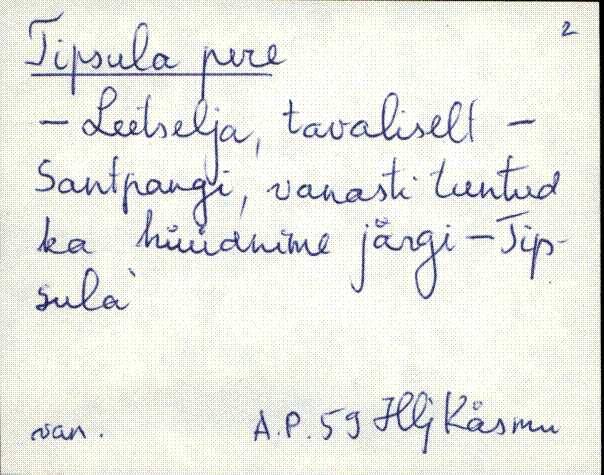 2
Tipsula pere
- Leetselja, tavaliselt -
Santpangi, vanasti tuntud
ka hüüdnime järgi - Tip-
sula
van. A.P. 59 Hlj Käsmu